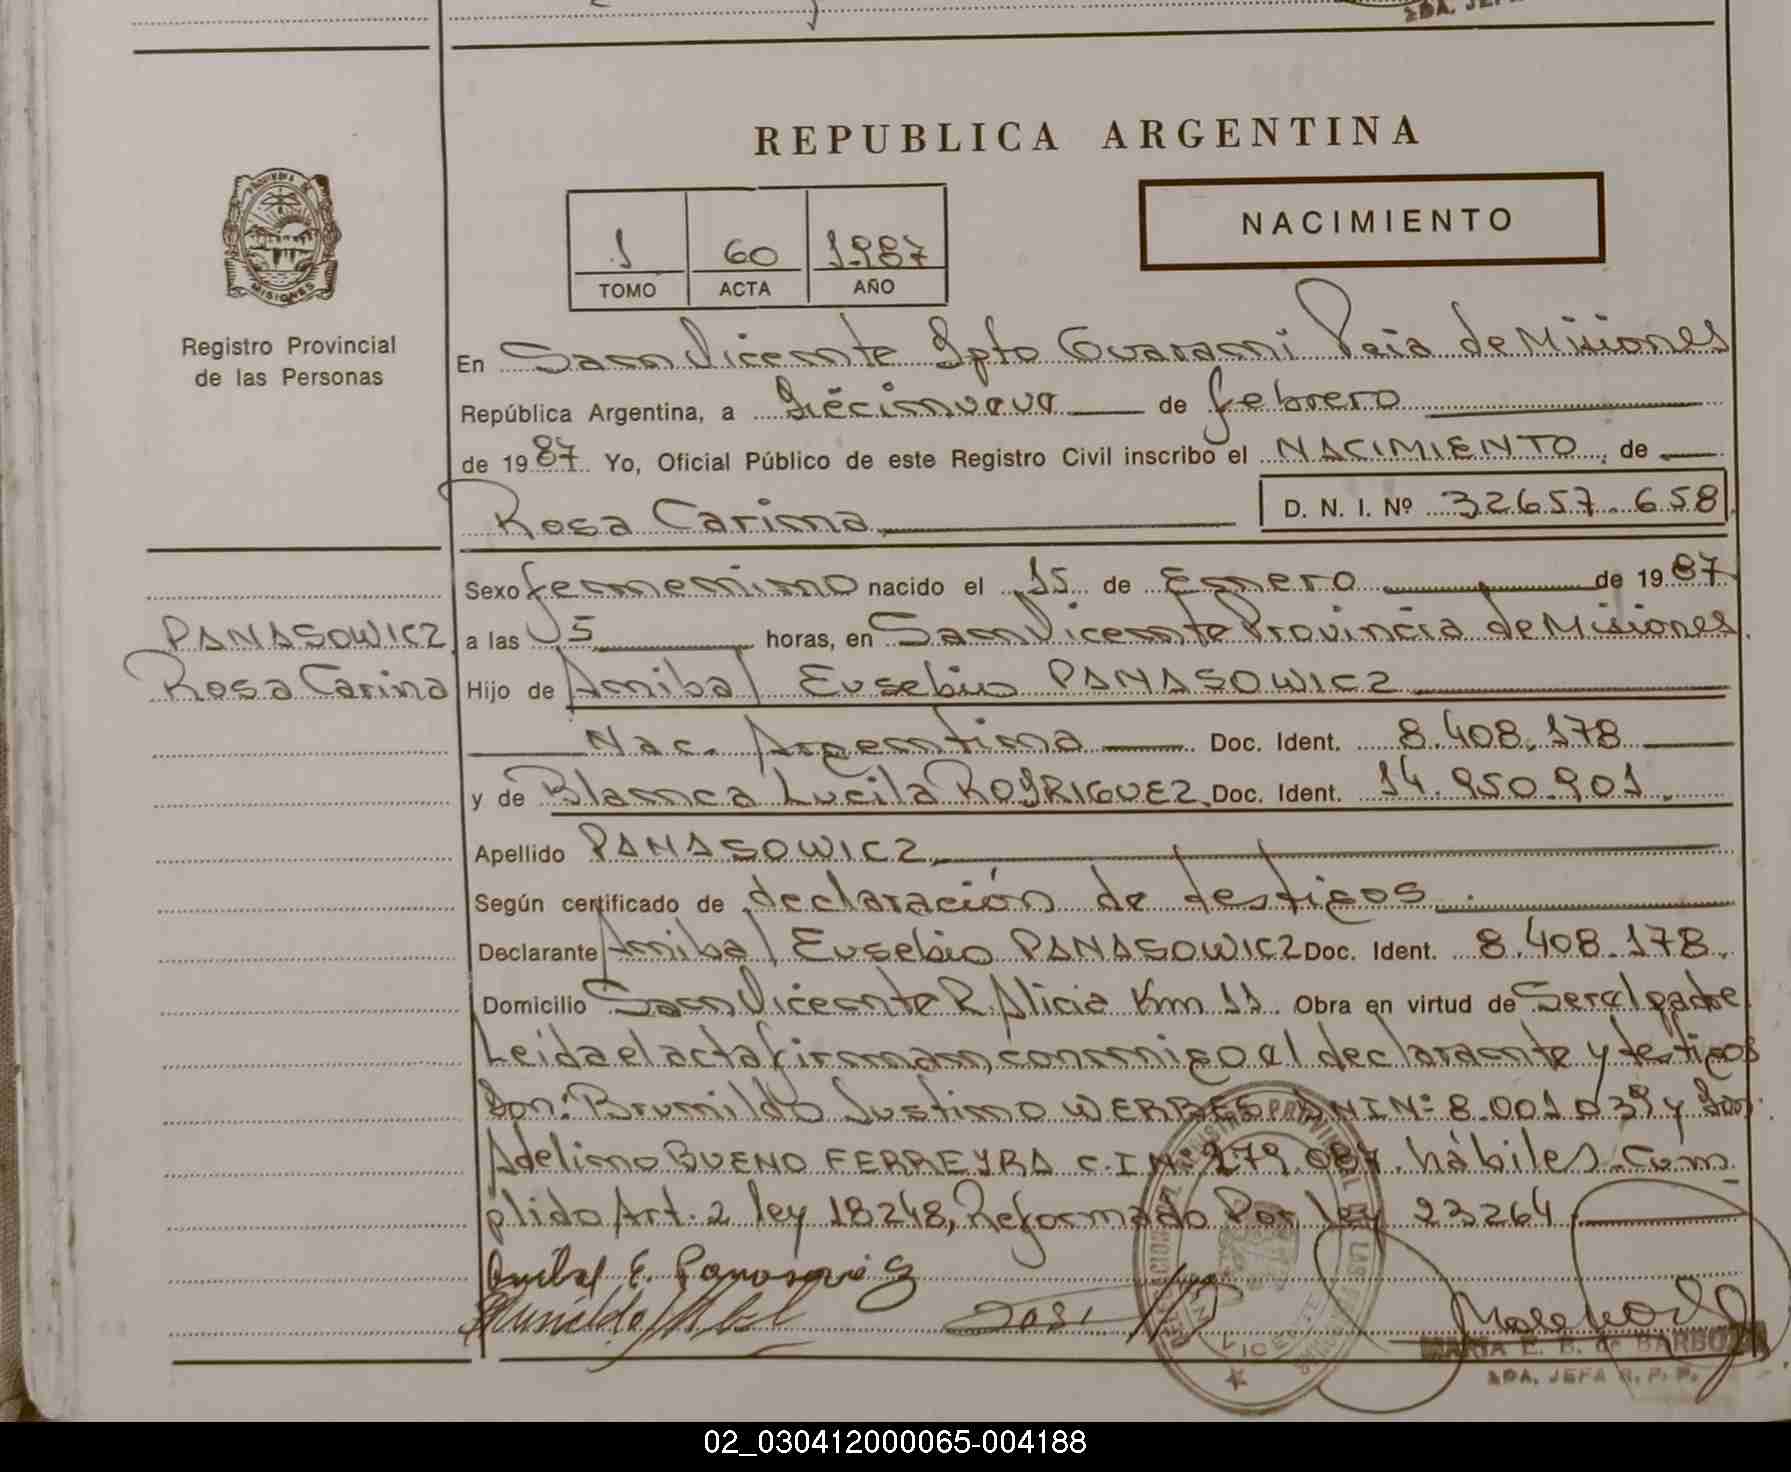 2DA. JEFA
REPUBLICA ARGENTINA
PROVINCIA DE
MISIONES
Registro Provincial
de las Personas
1 60 1987
TOMO ACTA AÑO
NACIMIENTO
En San Vicente Dpto Guarani Pcia de Misiones
República Argentina, a Diécinueve de febrero
de 1987 Yo, Oficial Público de este Registro Civil inscribo el NACIMIENTO, de
Rosa Carina D. N. I. Nº 32657.658
Sexo femenino nacido el 15 de Enero de 1987
PANASOWICZ
Rosa Carina
a las 5 horas, en San Vicente Provincia de Misiones.
Hijo de Anibal Eusebio PANASOWICZ
Nac. Argentina Doc. Ident. 8.408.178
y de Blanca Lucila RODRIGUEZ Doc. Ident. 14.950.901.
Apellido PANASOWICZ
Según certificado de declaración de testigos.
Declarante Anibal Eusebio PANASOWICZ Doc. Ident. 8.408.178.
Domicilio San Vicente P. Alicia Km 11. Obra en virtud de Ser el padre
Leida el acta firman conmigo el declarante y testigos
Don: Brunildo Justino WERBES DNI Nº 8.001.039 y Don
Adelino BUENO FERREYRA C.I Nº 279.087. hábiles. Cum
plido Art. 2 ley 18248, Reformado Por ley 23264
Anibal E. Panasowicz
MARIA E. B. de BARBOZA
2DA. JEFA R. P. P.
02_030412000065-004188